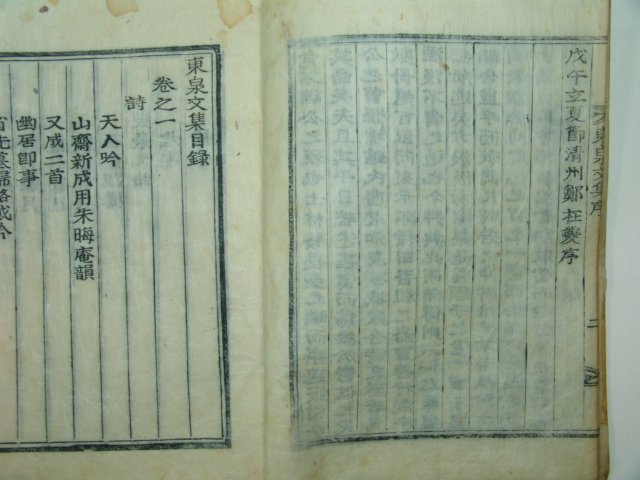 戊午立夏節清州鄭在夔序
東泉文集序
二
東泉文集目錄
卷之一
詩
天人吟
山齋新成用朱晦庵韻
又成二首
幽居卽事
省先墓歸路感吟